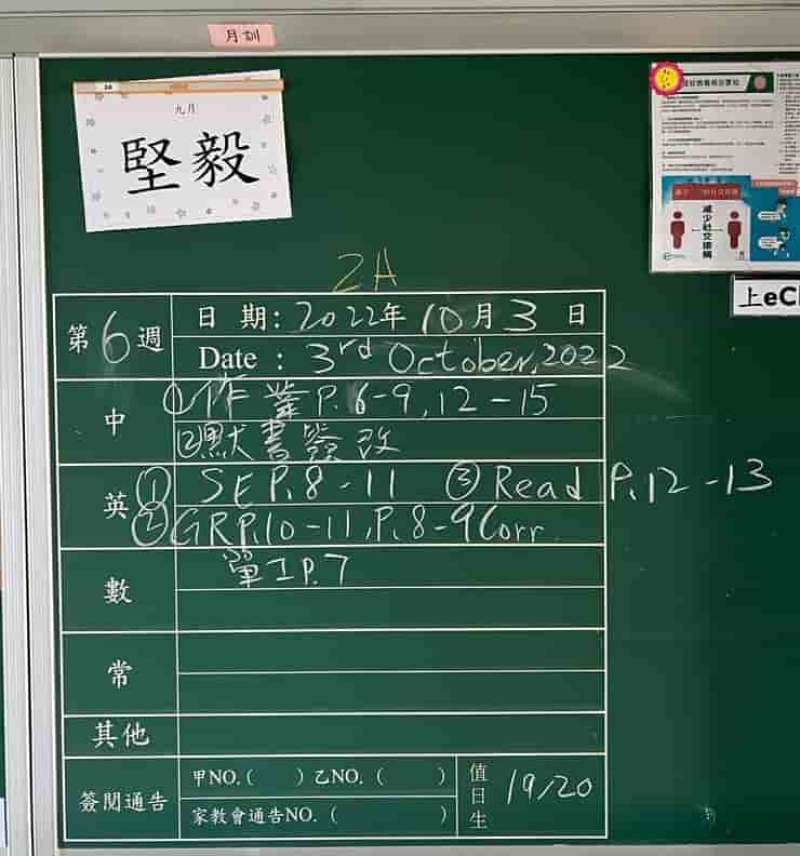 月訓
九月
堅毅
減少社交接觸
上eCl
2A
第6週
日 期: 2022年 10月 3 日
Date : 3rd October, 2022
中
①作業P.6-9, 12-15
②默書簽改
英
① SE P.8-11 ③ Read P.12-13
② GR P.10-11, P.8-9 Corr
數
單工P.7
常
其他
簽閱通告
甲NO.( ) 乙NO.( )
家教會通告NO.( )
值日生
19/20